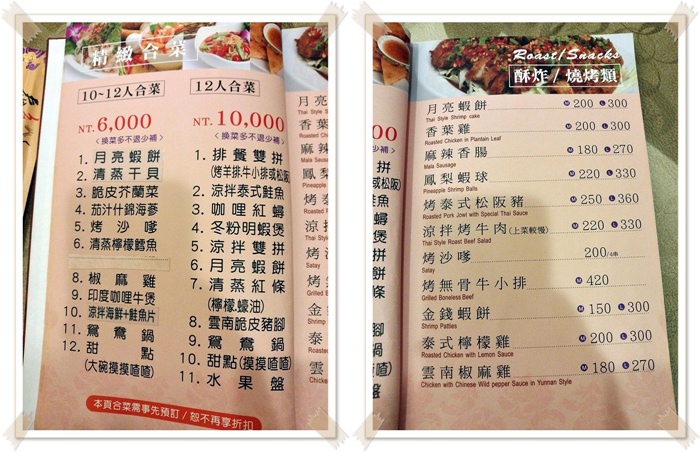 精緻合菜
10~12人合菜
NT.6,000
<換菜多不退少補>
1. 月亮蝦餅
2. 清蒸干貝
3. 脆皮芥蘭菜
4. 茄汁什錦海蔘
5. 烤沙嗲
6. 清蒸檸檬鱈魚
8. 椒麻雞
9. 印度咖哩牛煲
10. 涼拌海鮮+鮭魚片
11. 鴛鴦鍋
12. 甜點
(大碗摸摸喳喳)
12人合菜
NT.10,000
<換菜多不退少補>
1. 排餐雙拼
(烤羊排.牛小排或松阪
2. 涼拌泰式鮭魚
3. 咖哩紅蟳
4. 冬粉明蝦煲
5. 涼拼雙拼
6. 月亮蝦餅
7. 清蒸紅條
(檸檬.蠔油)
8. 雲南脆皮豬腳
9. 鴛鴦鍋
10. 甜點(摸摸喳喳)
11. 水果盤
本頁合菜需事先預訂 / 恕不再享折扣
Roast/Snacks
酥炸/燒烤類
月亮蝦餅 M 200 L 300
Thai Style Shrimp cake
香葉雞 M 200 L 300
Roasted Chicken in Plantain Leaf
麻辣香腸 M 180 L 270
Mala Sausage
鳳梨蝦球 M 220 L 330
Pineapple Shrimp Balls
烤泰式松阪豬 M 250 L 360
Roasted Pork Jowl with Special Thai Sauce
涼拌烤牛肉(上菜較慢) M 220 L 330
Thai Style Roast Beef Salad
烤沙嗲 200/4串
Satay
烤無骨牛小排 M 420
Grilled Boneless Beef
金錢蝦餅 M 150 L 300
Shrimp Patties
泰式檸檬雞 M 200 L 300
Roasted Chicken with Lemon Sauce
雲南椒麻雞 M 180 L 270
Chicken with Chinese Wild pepper Sauce in Yunnan Style